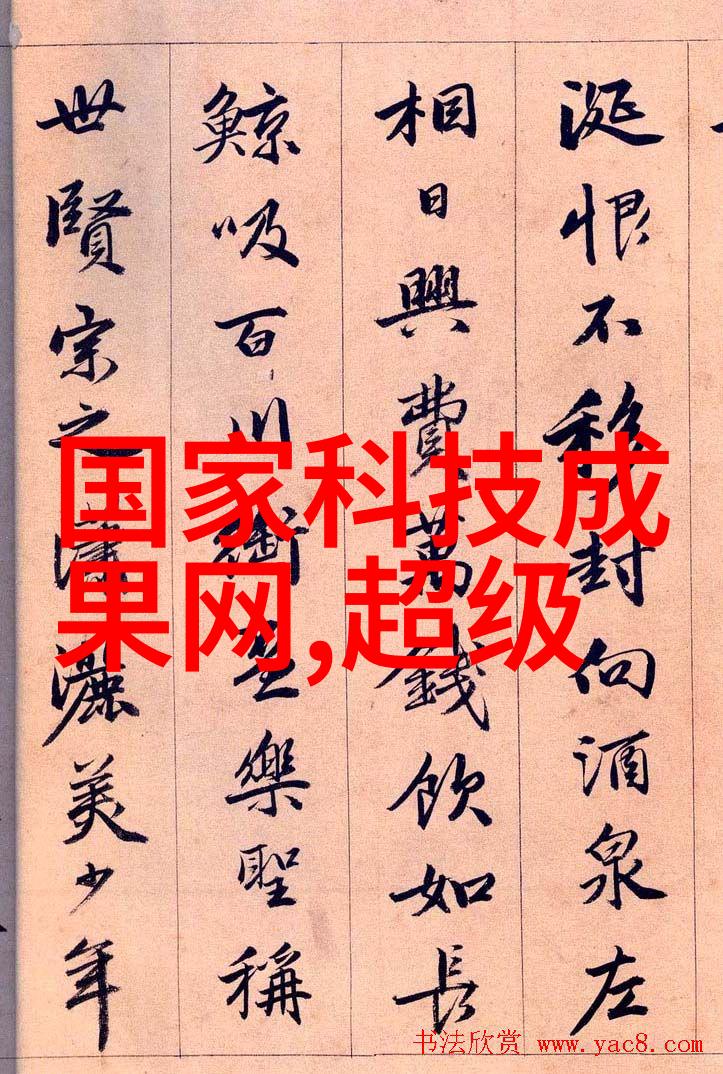 涎恨不移封向酒泉左
相日興費萬錢飲如長
鯨吸百川銜盃樂聖稱
世賢宗之瀟灑美少年
国家科技成
果网,超级
书法欣赏 www.yac8.com